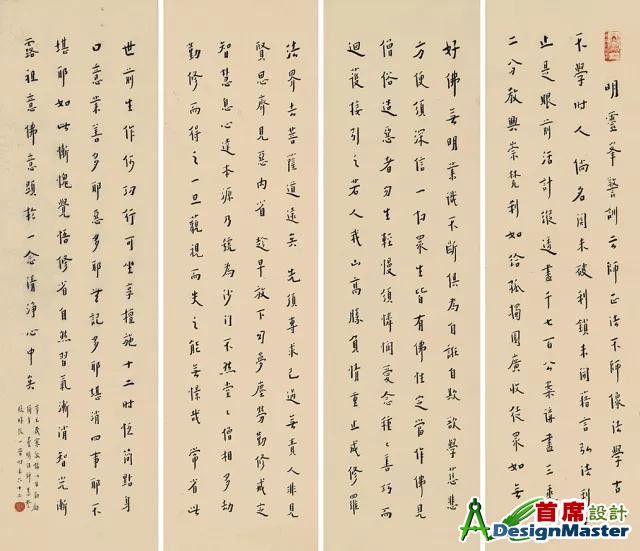 明靈峯警訓云師正法不師像法學古
不學時人倘名關未破利鎖未開藉言弘法利
止是眼前活計縱透盡千七百公案講盡三乘
二分教興崇梵剎如給孤獨園廣收徒眾如無
好佛毋明業識不斷俱為自誑自欺故學慈悲
方便須深信一切眾生皆有佛性定當作佛見
僧俗造惡者勿生輕慢須憐憫愛念種〻善巧而
迴護接引之若人我山高勝負情重止成修羅
法界去菩薩道遠矣先須專求己過毋責人非見
賢思齊見惡內省趁早放下勾夢塵勞勤修戒定
智慧息心達本源乃號為沙門不然堂〻僧相多劫
勤修而得之一旦藐視而失之能無懍哉常省此
世前生作何功行可坐享檀施十二時恆簡點身
口意業善多耶惡多耶無記多耶堪消四事耶不
堪耶如此慚愧覺悟修省自然習氣漸消智光漸
露祖意佛意顯於一念清淨心中矣
首席設計
DesignMaster